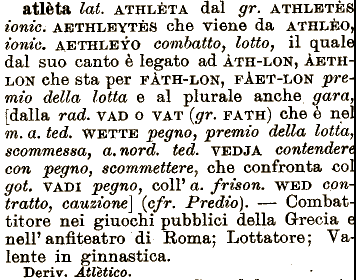 atlèta lat. ATHLÈTA dal gr. ATHLETÈS
ionic. AETHLEYTÈS che viene da ATHLÈO,
ionic. AETHLEỲO combatto, lotto, il quale
dal suo canto è legato ad ÀTH-LON, ÀETH-
LON che sta per FÀTH-LON, FÀET-LON pre-
mio della lotta e al plurale anche gara,
[dalla rad. VAD O VAT (gr. FATH) che è nel
m. a. ted. WETTE pegno, premio della lotta,
scommessa, a. nord. ted. VEDJA contendere
con pegno, scommettere, che confronta col
got. VADI pegno, coll' a. frison. WED con-
tratto, cauzione] (cfr. Predio). — Combat-
titore nei giuochi pubblici della Grecia e
nell'anfiteatro di Roma; Lottatore; Va-
lente in ginnastica.
Deriv. Atlètico.